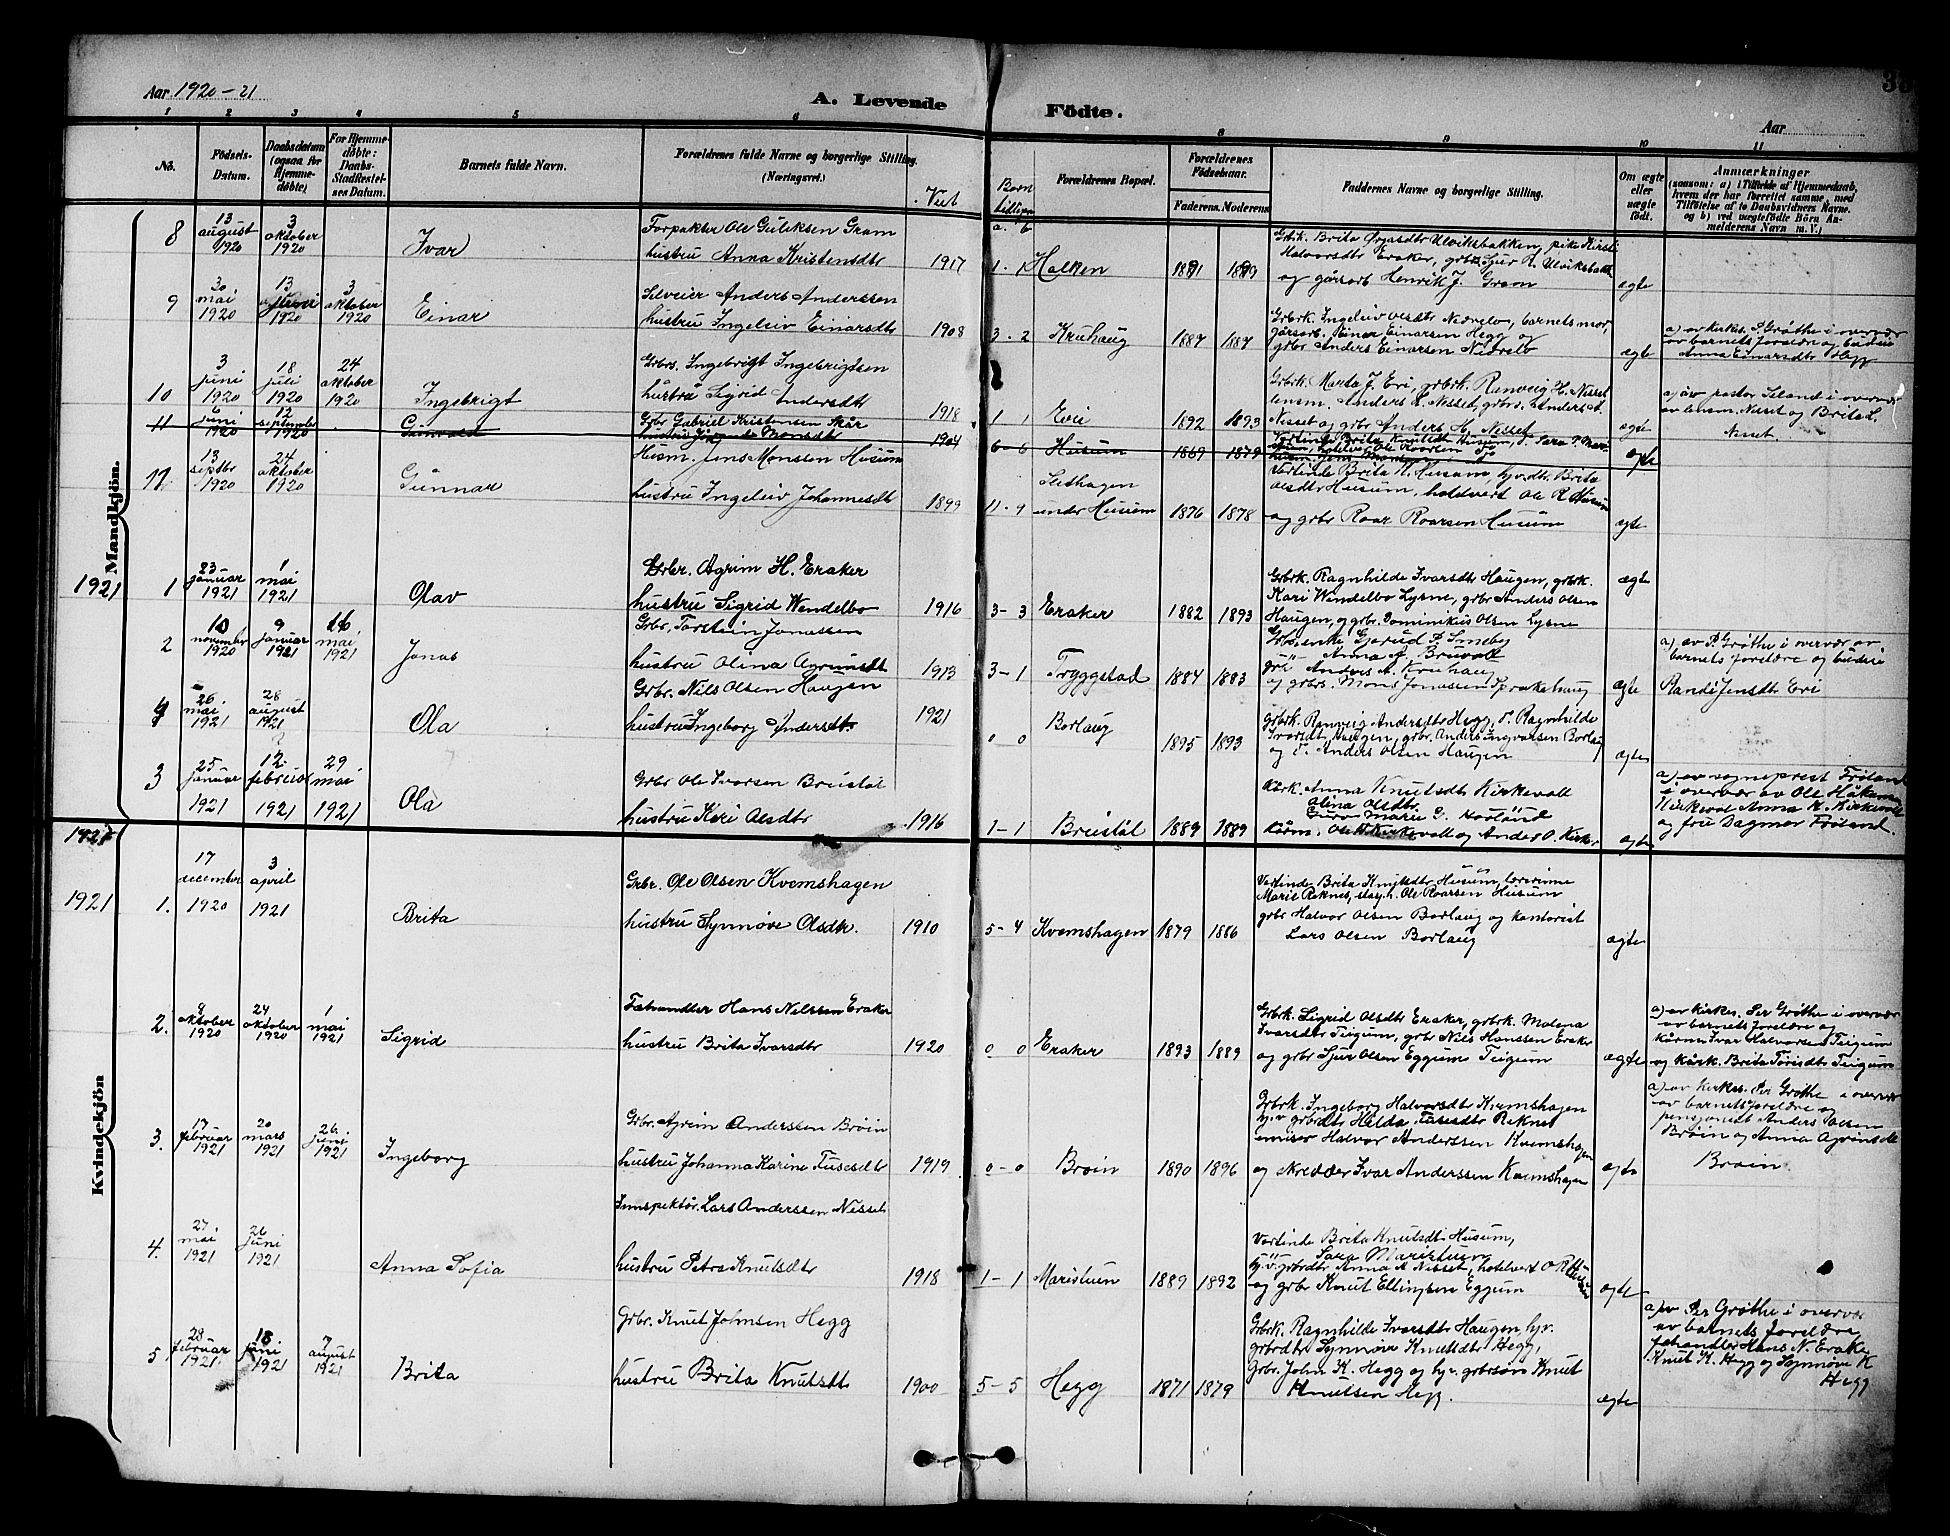 Aar 1920-21
A. Levende
Födte.
Aar
1 2 3 4 5 6 8 9 10 11
No.
Födsels-
Datum.
Daabsdatum
(ogsaa for
Hjemme-
döbte)
For Hjemme-
döbte:
Daabs-
Stadfæstel-
ses Datum.
Barnets fulde Navn.
Forældrenes fulde Navne og borgerlige Stilling.
(Næringsvei.)
Viet
Born
tidligere
a. b
Forældrenes Bopæl.
Forældrenes
Födselsaar.
Faderens. Moderens
Faddernes Navne og borgerlige Stilling.
Om ægte
eller
uægte
födt.
Anmærkninger
(saasom: a) i Tilfælde af Hjemmedaab,
hvem der har forrettet samme, med
Tilföielse af to Daabsvidners Navne.
og b) ved uægtefödte Börn An-
melderens Navn m. V.)
Mandkjön.
8
13
august
1920
3
oktober
1920
Ivar
Forpakter Ole Guliksen Gram
hustru Anna Kristensdtr
1917
1 - 1
Holken
1891
1899
Halvorsdtr Eraker,
og gårsarb Henrik J. Gram
ægte
9
30
mai
1920
13
juni
1920
3
oktober
1920
Einar
Anders Anderssen
hustru Ingeleiv Einarsdtr
1908
3 - 2
Kruhaug
1887
1887
Grbrk. Ingeleiv Olsdtr Nedrelo, barnets mor,
gårsarb. Einar Einarsen Hegg og
grbr Anders Einarsen Nedrelo
ægte
a) av kirkes. P. Grøthe i overvær
av barnets foreldre og
Anna Einarsdtr Hegg
10
3
juni
1920
18
juli
1920
24
oktober
1920
Ingebrigt
Grbrs. Ingebrigt Ingebrigtsen
hustru Sigrid Andersdtr
1918
1 1
Eri
1892
1893
Grbrk. Marta J. Eri, grbrk. Ranveig H. Nisset
lensm. Anders L. Nesset, grbrs. Anders A.
Nisset og grbr Anders H. Nisset
ægte
a) av pastor Seland i overvær
av lensm. Nisset og Brita L.
Nisset
11
6
juni
1920
12
september
1920
Grbr Gabriel Kristensen Skår
1904
6 - 6
Husum
1869
1879
ægte
11
13
septbr
1920
24
oktober
1920
Gunnar
Husm. Jens Monssen Husum
hustru Ingeleiv Johannesdtr
1899
11 - 9
Slethagen
under Husum
1876
1878
Vertinde Brita K. Husum, hjv. dtr. Brita
Olsdtr Husum, hotelvert Ole R. Husum
og grbr Roar Roarsen Husum
ægte
1921
1
23
januar
1921
1
mai
1921
Olav
Grbr. Agrim H. Eraker
hustru Sigrid Wendelbo
1916
3 - 3
Eraker
1882
1893
Grbrk. Ragnhilde Ivarsdtr Haugen, grbrk.
Kari Wendelbo Lysne, grbr Anders Olsen
Haugen, og grbr. Dominikus Olsen Lysne
ægte
2
10
november
1920
9
januar
1921
16
mai
1921
Jonas
Grbr. Torstein Jonassen
hustru Olina Agrimsdt
1913
3 - 1
Tryggstad
1884
1883
Grbr. enke Gjørud P. Smeby
Anna A. Bruvoll
Anders A. Kruhaug
og grbrs. Mons Jonassen Sprakehaug
ægte
a) av P. Grøthe i overvær av
barnets foreldre og
Randi Jensdtr Eri
4
26
mai
1921
28
august
1921
Ola
Grbr. Nils Olsen Haugen
hustru Ingeborg Andersdt.
1921
0 0
Borlaug
1895
1893
Grbrk. Ranveig Andersdtr Hegg, P. Ragnhilde
Ivarsdt. Haugen, grbr. Anders Ingvarssen Borlaug
og P. Anders Olsen Haugen
ægte
3
25
januar
1921
12
februar
1921
29
mai
1921
Ola
Grbr Ole Ivarsen Breistøl
hustru Kari Olsdtr
1916
1 - 1
Breistøl
1889
1889
Kårk. Anna Knutsdt Kirkevoll
Olina Olsdtr.
Guro Marie G. Hovland
Kårm. Ole H. Kirkevoll og Anders O. Kirkev.
ægte
a) av sogneprest Frøland
i overvær av Ole Håkonss
Kirkevol Anna K. Kirkevol
og frue Dagmar Frøland.
1921
Kvindekjön
1921
1.
17
december
1920
3
april
1921
Brita
Grbr. Ole Olsen Kvemshagen
hustru Synnøve Olsdtr.
1910
5 - 4
Kvemshagen
1879
1886
Vertinde Brita Knutsdtr Husum, lærerinne
Marie Reknes, Ole Roarsen Husum
grbr Halvor Olsen Borlaug og kantorist
Lars Olsen Borlaug
ægte
2.
9
oktober
1920
24
oktober
1920
1
mai
1921
Sigrid
Fehandler Hans Nilssen Eraker
hustru Brita Ivarsdtr
1920
0 0
Eraker
1893
1889
Grbrk. Sigrid Olsdtr Eraker, grbrk. Molena
Ivarsdtr Teigum, grbr Nils Hanssen Eraker
og grbr Sjur Olsen Eggum Teigum
ægte
a) av kirkes. Per Grøthe i overvær
av barnets foreldre og
kårm. Ivar Halvorsen Teigum
og kårk. Brita Torisdtr Teigum
3.
17
februar
1921
20
mars
1921
26
juni
1921
Ingeborg
Grbr. Agrim Anderssen Brøin
hustru Johanna Karine Tusesdtr
1919
0 - 0
Brøin
1890
1896
Grbrk. Ingeborg Halvorsdtr Kvemshagen
hjv grbrdtr Hilda Tusesdtr Reknes
emisær Halvor Anderssen Kvemshagen
og skredder Ivar Anderssen Kvemshagen
ægte
a) av kirkes. Per Grøthe i overvær
av barnets foreldre og
pensjonist Anders Olsen
Brøin og Anna Agrimsdt
Brøin
4.
27
mai
1921
26
juni
1921
Anna Sofia
Innspektør. Lars Anderssen Nisset
hustru Petra Knutsdtr
1918
1 - 1
Maristuen
1889
1892
Vertinde Brita Knutsdtr Husum,
Sara Maristuen
hj.v. grbrdtr Anna A Nisset, hotelvert O R Husum
og grbr Knut Ellingsen Eggum
ægte
5.
28
februar
1921
18
juni
1921
7
august
1921
Brita
Grbr. Knut Johnsen Hegg
hustru Brita Knutsdtr
1900
5 - 5
Hegg
1871
1879
Grbrk. Ragnhilde Ivarsdtr Haugen, hj.v.
grbrdtr Synnøve Knutsdtr Hegg,
Grbr. John K. Hegg og hj.v. grbrsøn Knut
Knutsen Hegg.
ægte
a) av Per Grøthe i overvær
av barnets foreldre,
fehandler Hans N. Eraker
Knut K. Hegg og Synnøve K
Hegg